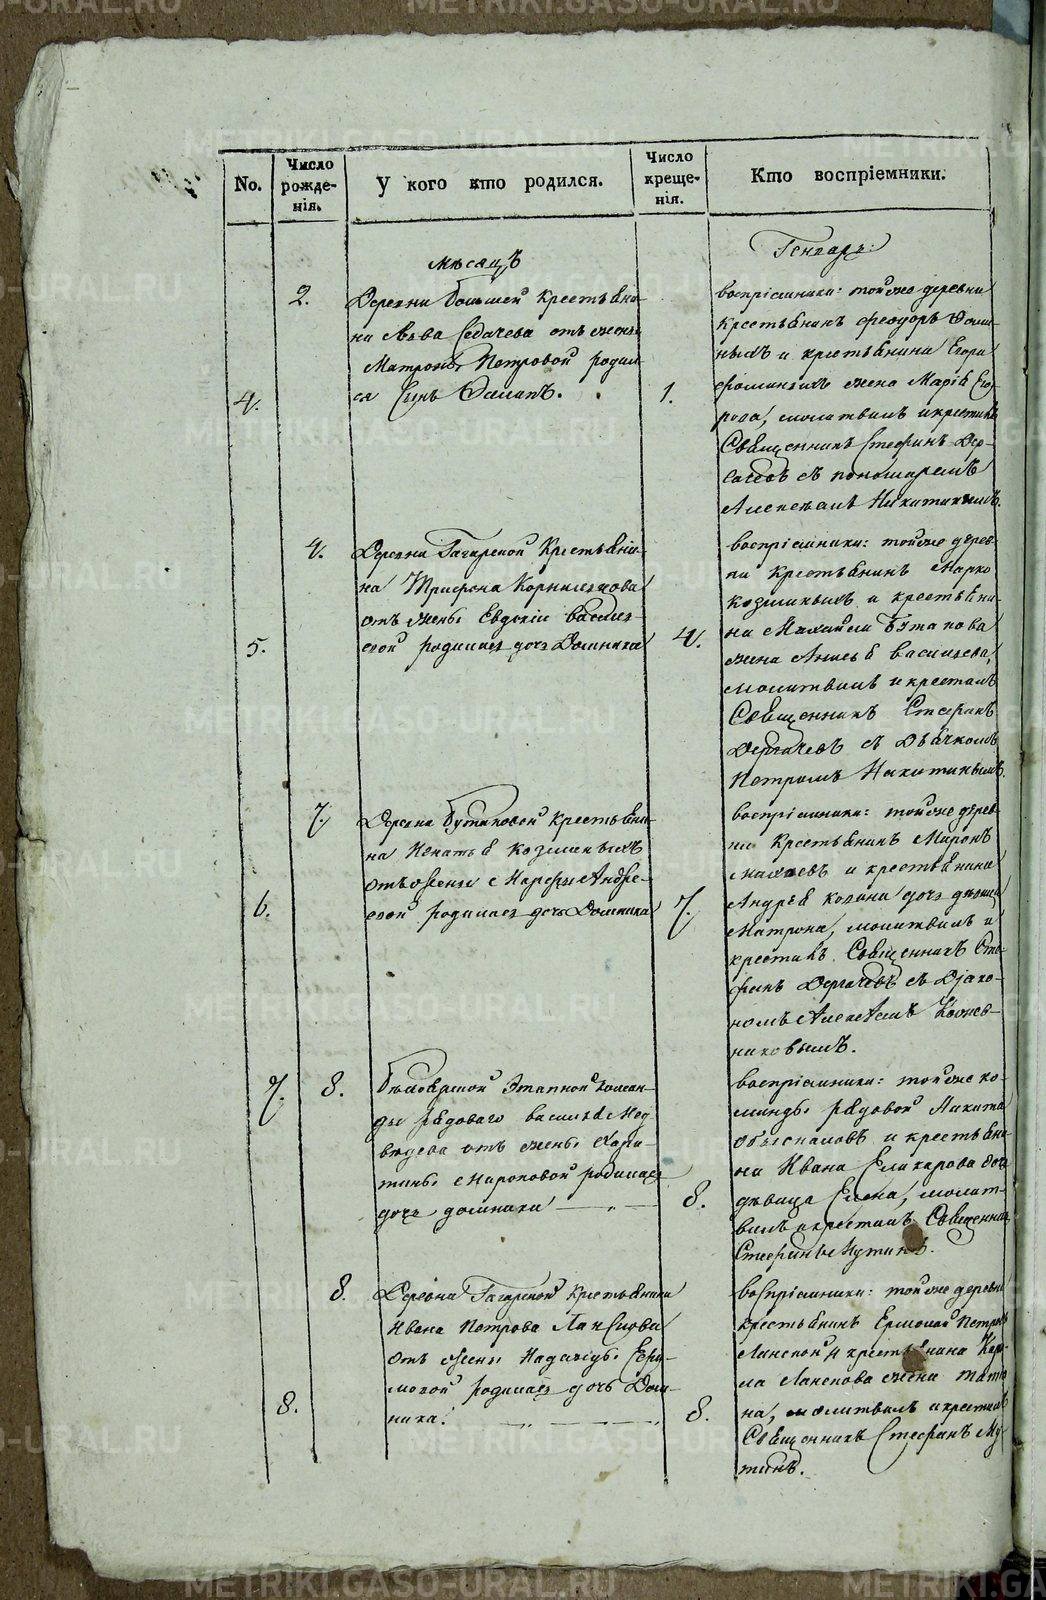 No.
Число рожде-нія.
У кого кто родился.
Число креще-нія.
Кто воспріемники.
мѣсяцъ
Генварь:
4.
2.
Деревни Большей крестьяни-
на Льва Седачева отъ жены
Матроны Петровой родил-
ся сынъ
1.
воспріемники: тойже деревни
крестьянинъ Феодоръ
ныхъ и крестьянина Егора
жена Марія Его-
рова, молитвилъ и крестилъ
Священникъ Стефанъ Дер-
гачевъ съ пономаремъ
Алексѣемъ Никитинымъ.
5.
4.
Деревни Гагарской Крестьяни-
на Трифона
отъ жены Евдокіи Василь-
евой родилась дочь Домника
4.
воспріемники: тойже дерев-
ни крестьянинъ Марко
Козминыхъ и крестьяни-
на Михайла Бутакова
жена Анисья Васильева,
молитвилъ и крестилъ
Священникъ Стефанъ
Дергачевъ съ Дьячкомъ
Петромъ Никитинымъ.
6.
7.
Деревни Бутаковой крестьяни-
на Игнатья Козминыхъ
отъ жены Марфы Андре-
евой родилась дочь Домника
7.
воспріемники: тойже дерев-
ни Крестьянинъ Миронъ
и крестьянина
Андрея дочь дѣвица
Матрона, молитвилъ и
крестилъ Священникъ Сте-
фанъ Дергачевъ съ Діако-
номъ Алексѣемъ Кожев-
никовымъ.
7.
8.
Бѣлоярской Этапной коман-
ды рядоваго Василья Мед-
вѣдева отъ жены Хари-
тины Мироновой родилась
дочь Домника
8.
воспріемники: тойже ко-
манды рядовой Никита
и крестьяни-
на Ивана Елизарова дочь
дѣвица Елена, молит-
вилъ и крестилъ Священникъ
Стефанъ Мутинъ.
8.
8.
Деревни Гагарской Крестьянина
Ивана Петрова
отъ жены Надежды Ефи-
мовой родилась дочь Дом-
ника.
8.
воспріемники: тойже деревни
крестьянинъ Ермолай Петровъ
и крестьянина
жена Татья-
на, молитвилъ и крестилъ
Священникъ Стефанъ Му-
тинъ.
METRIKI.GASO-URAL.RU